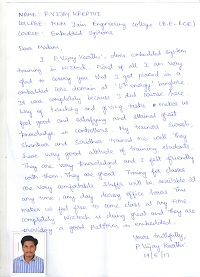 NAME: P. VIJAY KEERTHI
COLLEGE: MNM Jain Engineering College (B.E. ECE)
COURSE: Embedded Systems
Dear Madam,
I P. Vijay Keerthi, done embedded system
training in Wiztech. First of all I am very
glad to convey you that I got placed in a
embedded core domain at
It was completely because I did course here
Way of teaching and giving tasks makes us
feel good and satisfying and attained great
knowledge in controllers. My trainers
and trained me well. They
have very good attitude of training students
They are very knowledged and I felt friendly
with them. They are good. Timing for classes
are very comfortable. Shifts will be available at
any time, any day during office hours. This
makes us feel free to come class at any time
completely Wiztech is doing great and they are
providing a good platform in embedded.
Yours faithfully,
P. Vijay Keerthi